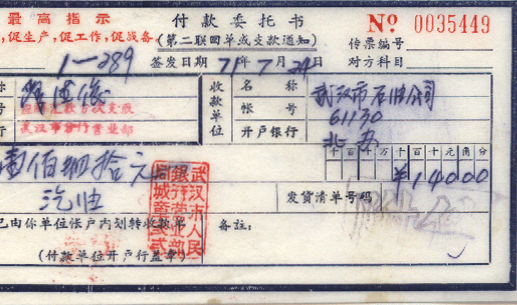 最高指示
促生产，促工作，促战备
付款委托书
（第二联回单或支款通知）
No 0035449
传票编号
1—289
签发日期 71年7月24日
对方科目
收款单位
名称
武汉市石油公司
武汉市分行营业部
帐号
61130
开户银行
千百十万千百十元角分
壹佰肆拾元
¥14000
汽油
发货清单号码
武汉市人民
银行营业部
同城
已由你单位帐户内划转收款
备注：
（付款单位开户行盖章）